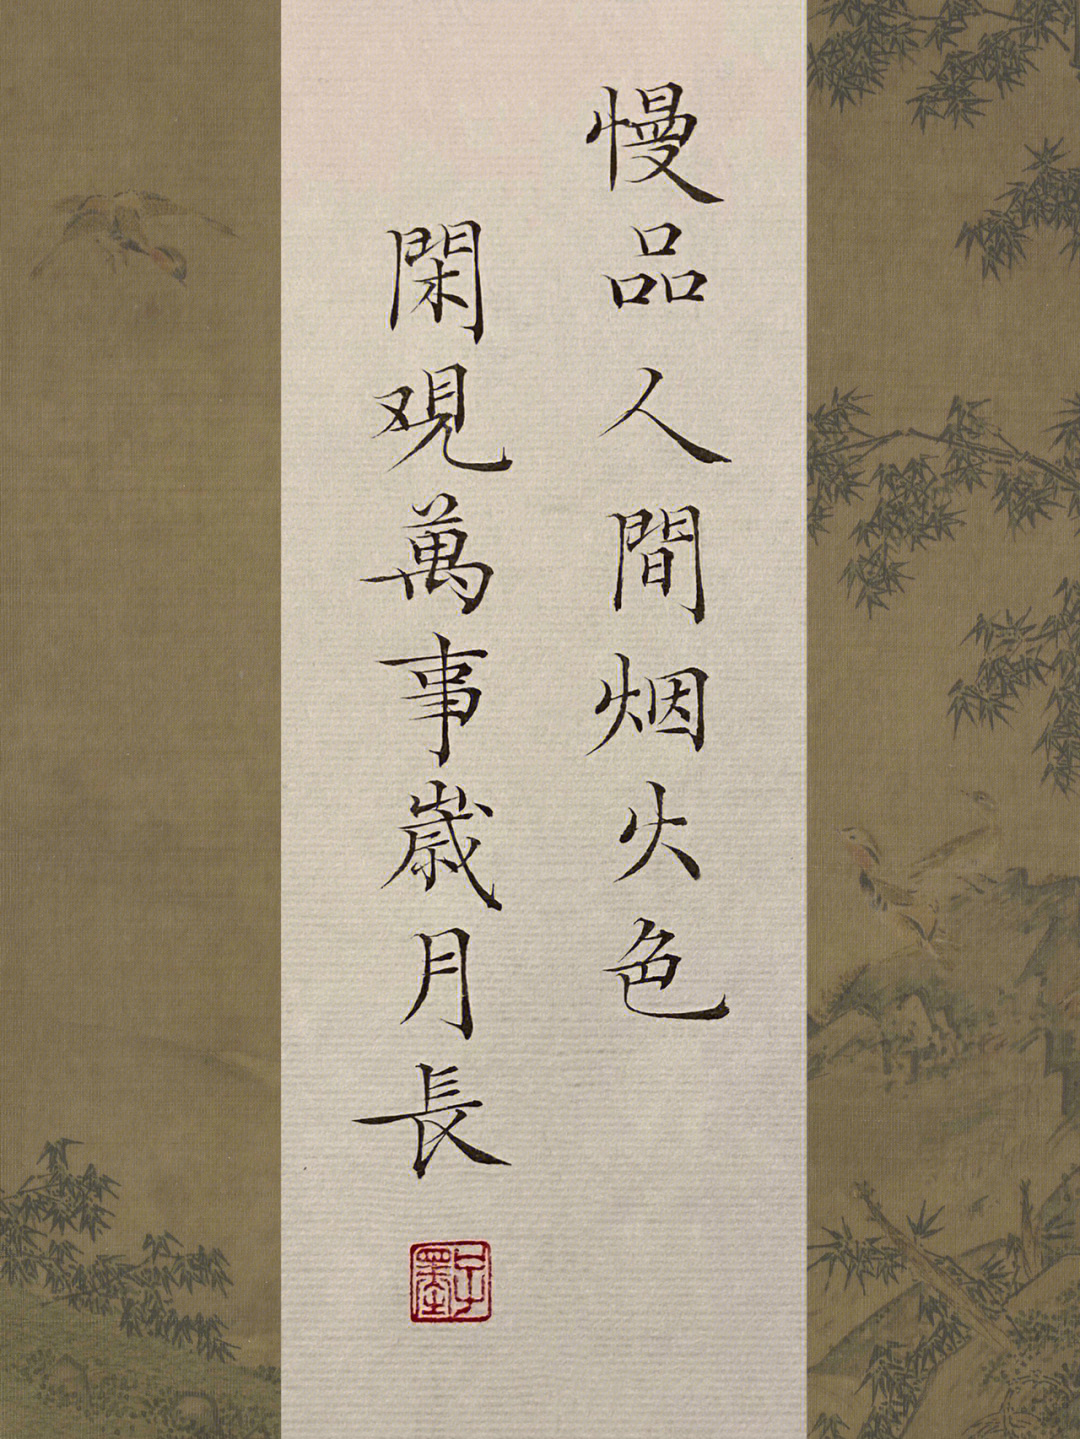 慢品人間烟火色
閑观萬事歳月長